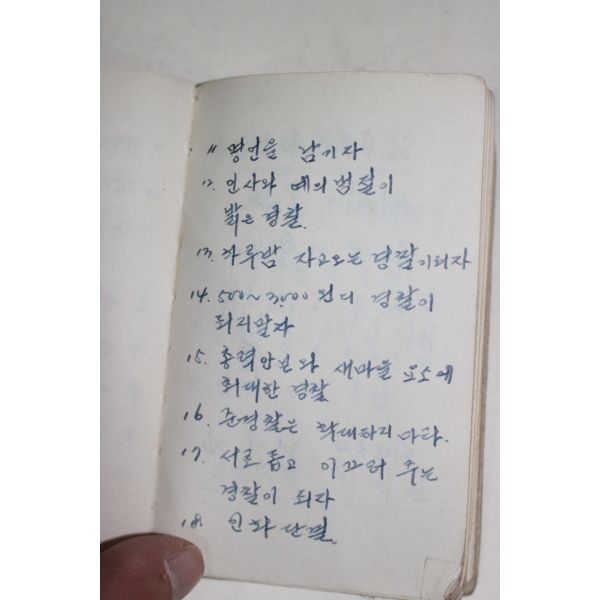 11 명언을 남기자
12. 인사와 예의범절이
밝은 경찰.
13. 하루밤 자고오는 경찰이되자
14. 500~3,000원디 경찰이
되지말자
15. 총력안보와 새마을 요소에
최대한 경찰
16. 준경찰은 학대하지 마라.
17. 서로 돕고 이끄러 주는
경찰이 되자
18. 인화 단결.